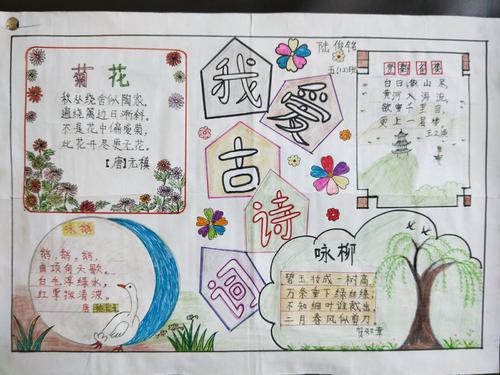 菊花
秋丛绕舍似陶家,
遍绕篱边日渐斜。
不是花中偏爱菊,
此花开尽更无花。
【唐】元稹
我爱古诗词
五(12)班
登鹳雀楼
白日依山尽
黄河入海流
欲穷千里目
更上一层楼
王之涣
咏鹅
鹅,鹅,鹅,
曲项向天歌。
白毛浮绿水,
红掌拨清波。
唐 骆宾王
咏柳
碧玉妆成一树高,
万条垂下绿丝绦。
不知细叶谁裁出,
二月春风似剪刀
贺知章